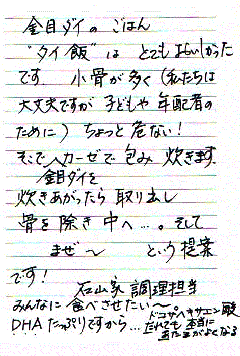 金目ダイの ごはん
"タイ飯"は とてもおいしかった
です 小骨が多く(私たちは
大丈夫ですが 子どもや年配者の
ために) ちょっと危ない!
そこで ガーゼで包み 炊きます
金目ダイを
炊きあがったら 取り出し
骨を除き中へ…。そして
まぜ〜 という提案
です!
石山家 調理担当
みんなに食べさせたい〜。
ドコサヘキサエン酸
DHA たっぷりですから… だれでも 本当に
あたまがよくなる